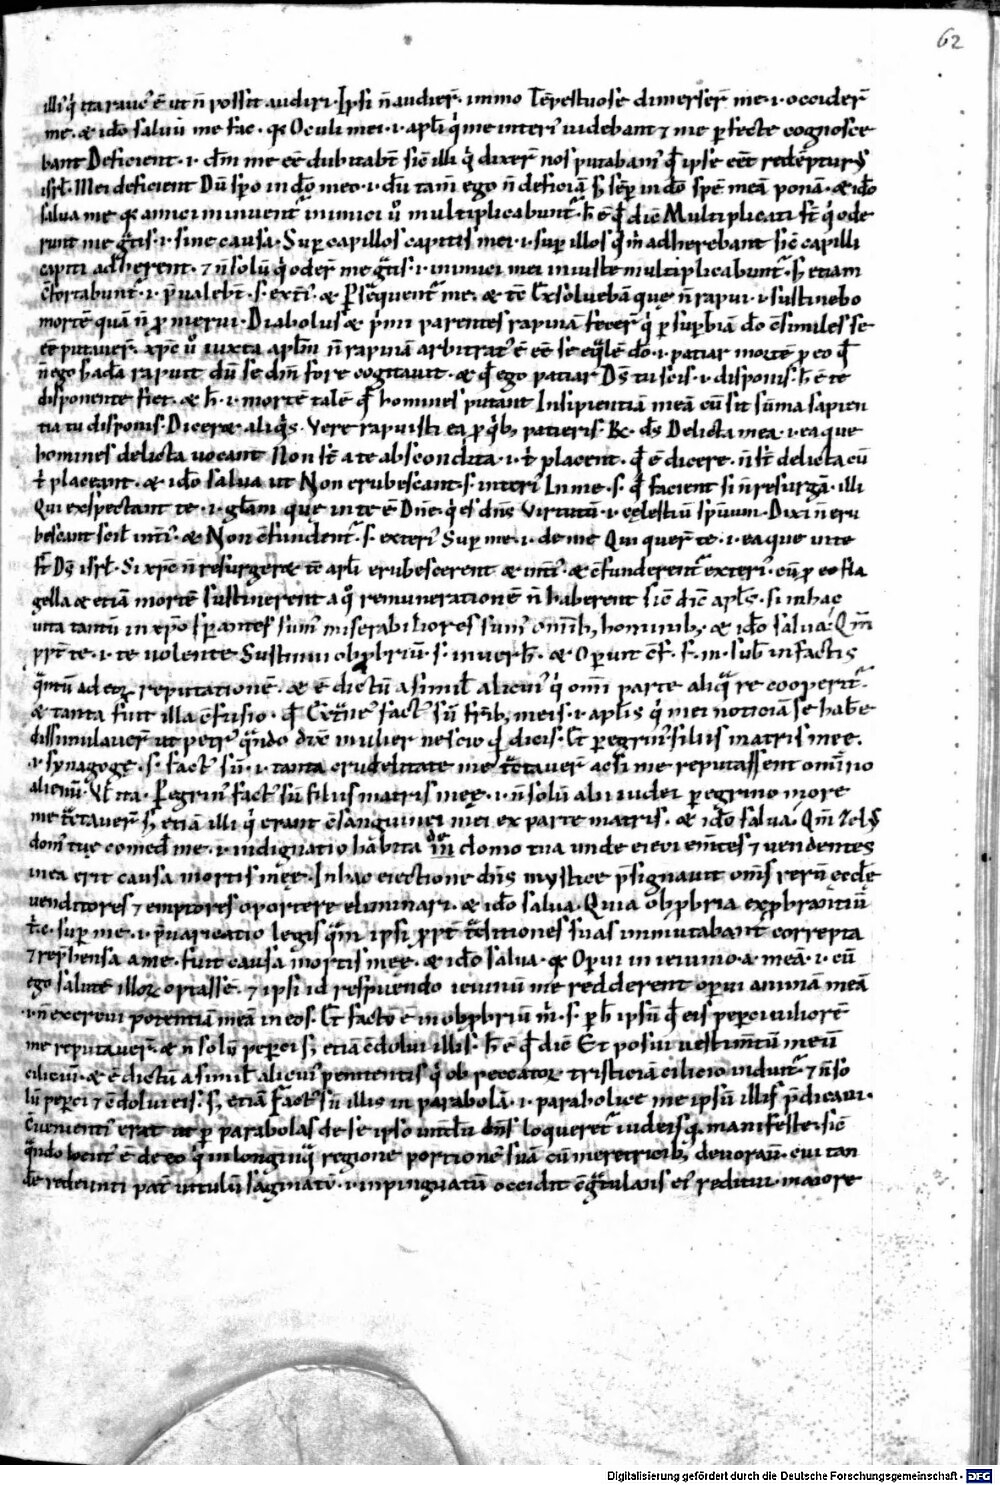 62
illi q̓ ita rauc᷒ ē ut n̄ possit audiri. Ipsi n̄ audier̄. immo Tēpestuose dimerser̄ me .i. occider̄
me. & ido᷒ saluū me fac. q᷒ Oculi mei .i. apl̄i q̓ me interi᷒ uidebant ⁊ me ꝑfecte cognosce
bant Deficient .i. dm̄ me ēē dubitabt᷒ sic̄ illi q̓ dixer̄ nos putabam᷒ qd̄ ipse eēt redēpturꝰ
isrl̄. Mei deficient Dū spo in dō meo .i. dū tam̄ ego n̄ deficiā s; sēp in dō spē meā ponā. & ido᷒
salua me q᷒ amici minuent᷒ inimici u᷒o multiplicabunt᷒. h̄ ē qd̄ dic̄ Multiplicati st̄ q̓ ode
runt me gͣtis .i. sine causa. Super capillos capitis mei .i. sup illos q̓ m̓ adherebant sic̄ capilli
capiti adherent. ⁊ n̄ solū q̓ oder̄ me gͣtis .i. inimici mei iniuste multiplicabunt᷒. s; etiam
c̄fortabunt᷒ .i. p̄ualebt̄ .s. exti᷒. & Psequent᷒ me. & tc̄ Exsoluebā que n̄ rapui .i. sustinebo
mortē quā n̄ ꝓmerui. Diabolus & p̓mi parentes rapinā fecer̄ q̓ ꝑ supbiā dō c̄similes se
ēē putauer̄. xp̄c u᷒o iuxta aplm̄ n̄ rapinā arbitrat᷒ ē ēē se eq̄lē dō .i. patiar mortē ꝓ eo qd̄
n̄ ego s; adā rapuit dū se dm̄ fore cogitauit. & qd̄ ego patiar Dš tu scis .i. disponis. h̄ ē te
disponente fiet. & h̄ .i. mortē talē qd̄ homines putant Insipientiā meā cū sit sūma sapien
tia tu disponis. Diceret aliq̓s. Vere rapuisti ea ꝓ q̓b; patieris. Ec᷒. dš Delicta mea .i. ea que
homines delicta uocant Non st̄ a te abscondita .i. t̓ placent. qd̄ ē dicere. n̄ st̄ delicta cū
t̓ placeant. & ido᷒ salua ut Non erubescant .s. interi᷒ In me .s. qd̄ facient si n̄ resurgā. illi
Qui exspectant te .i. gl̄am que in te ē Dnē. q̓ es dn̄s Virtutū .i. cęlestiū spūum. Dixi n̄ eru
bescant scil᷒ inti᷒. & Non c̄fundent᷒ .s. exteri᷒ Sup me .i. de me Qui quer̄ te .i. ea que in te
st̄ Dš isrl̄. Si xp̄c n̄ resurgeret tc̄ apl̄i erubescerent & inti᷒. & c̄funderent᷒ exteri᷒. cū ꝓ eo fla
gella & etiā mortē sustinerent a q̊ remunerationē n̄ haberent sic̄ dic̄ apl̄s. si in hac
uita tantū in xp̄o sperantes sum᷒ miserabiliores sum᷒ omib; hominib;. & ido᷒ salua. Qm̄
ppt̄ te .i. te uolente Sustinui obpbriū .s. in uerb᷒. & Operuit c̄f. f. m. sub᷒ in factis
q̄ntū ad eoꝝ reputationē. & ē dictū a simil᷒ alicui᷒ q̓ omī parte aliq̄ re cooperit᷒.
& tanta fuit illa c̄fusio. qd̄ Extͣne᷒ fact᷒ sū frīb; meis .i. apl̄is q̓ mei noticiā se habe᷒
dissimulauer̄ ut petr᷒ q̄ndo dix̄ mulier nescio qd̄ dicis. Et peregrin᷒ filiis matris mee.
.i. synagoge .s. fact᷒ sū .i. tanta crudelitate me tͣctauer̄ acsi me reputassent omīno
alienū. Vt̄ ita. Peregrin᷒ fact᷒ sū filiis matris meę .i. n̄ solū alii iudei peregrino more
me tͣctauer̄ s; etiā illi q̓ erant c̄sanguinei mei ex parte matris. & ido᷒ salua. Qm̄ Zelꝰ
dom᷒ tuę comed᷒ me .i. indignatio habita de domo tua unde eieci emtes ⁊ uendentes
mea erit causa mortis meę. In hac eiectione dn̄s mystice p̄signauit om̄s rerū eccle᷒
uenditores ⁊ emptores oportere eliminari. & ido᷒ salua. Quia obpbria expbrantiū
t̓. c. sup me .i. p̄uaricatio legis q̄m ipsi ppt̄ tͣditiones suas immutabant correpta
⁊ rep̄hensa a me. fuit causa mortis meę. & ido᷒ salua. q᷒ Operui in ieiunio. a. meā .i. cū
ego salutē illoꝝ optassē. ⁊ ipsi id respuendo ieiunū me redderent operui animā meā
.i. n̄ exercui potentiā meā in eos. Et factū ē in obpbriū m̓ .s. ꝑ h̄ ipsū qd̄ eis peperci uiliorē
me reputauer̄. & n̄ solū peperci s; etiā c̄dolui illis. h̄ ē qd̄ dic̄ Et posui uestimtū meū
ciliciū. & ē dictū a simil᷒ alicui᷒ penitentis q̓ ob peccatoꝝ tristiciā cilicio induit᷒. ⁊ n̄ so
lū peperci ⁊ c̄dolui eis. s; etiā Fact᷒ sū illis in parabolā .i. parabolice me ipsū illis p̄dicaui.
C̄uenienti᷒ erat ut ꝑ parabolas de se ipso uncdū dn̄s loqueret᷒ iudeis q̄ manifeste. sic̄
q̄ndo locut᷒ ē de eo q̓ in longinq̄ regione portionē suā cū meretricib; deuorau᷒. cui tan
dē redeunti pat᷒ uitulū saginatū .i. inpinguatū occidit c̄gͣtulans ei᷒ reditui. maiore
Digitalisierung gefördert durch die Deutsche Forschungsgemeinschaft - DFG